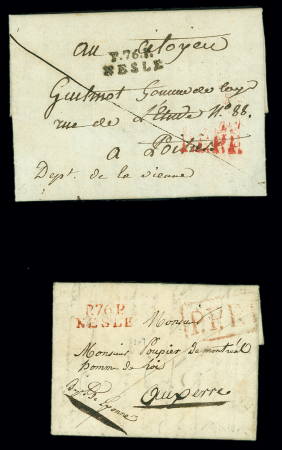 au Citoyen
P.76.P.
NESLE
Guilmot homme de loy
rue de l'Etude N.o 88.
a Poitiers
Dept. de la vienne
P.76.P.
NESLE
Monsieur
Monsieur Poupier de montreal
homme de loi
auxerre
Dept. De l'yonne